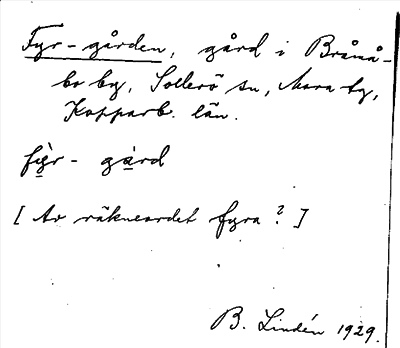 Fyr-gården, gård i Bråmå-
bo by, Sollerö sn, Mora tg,
Kopparb. län.
fỳr- gård
[Av räkneordet fyra?]
B. Lindén 1929.